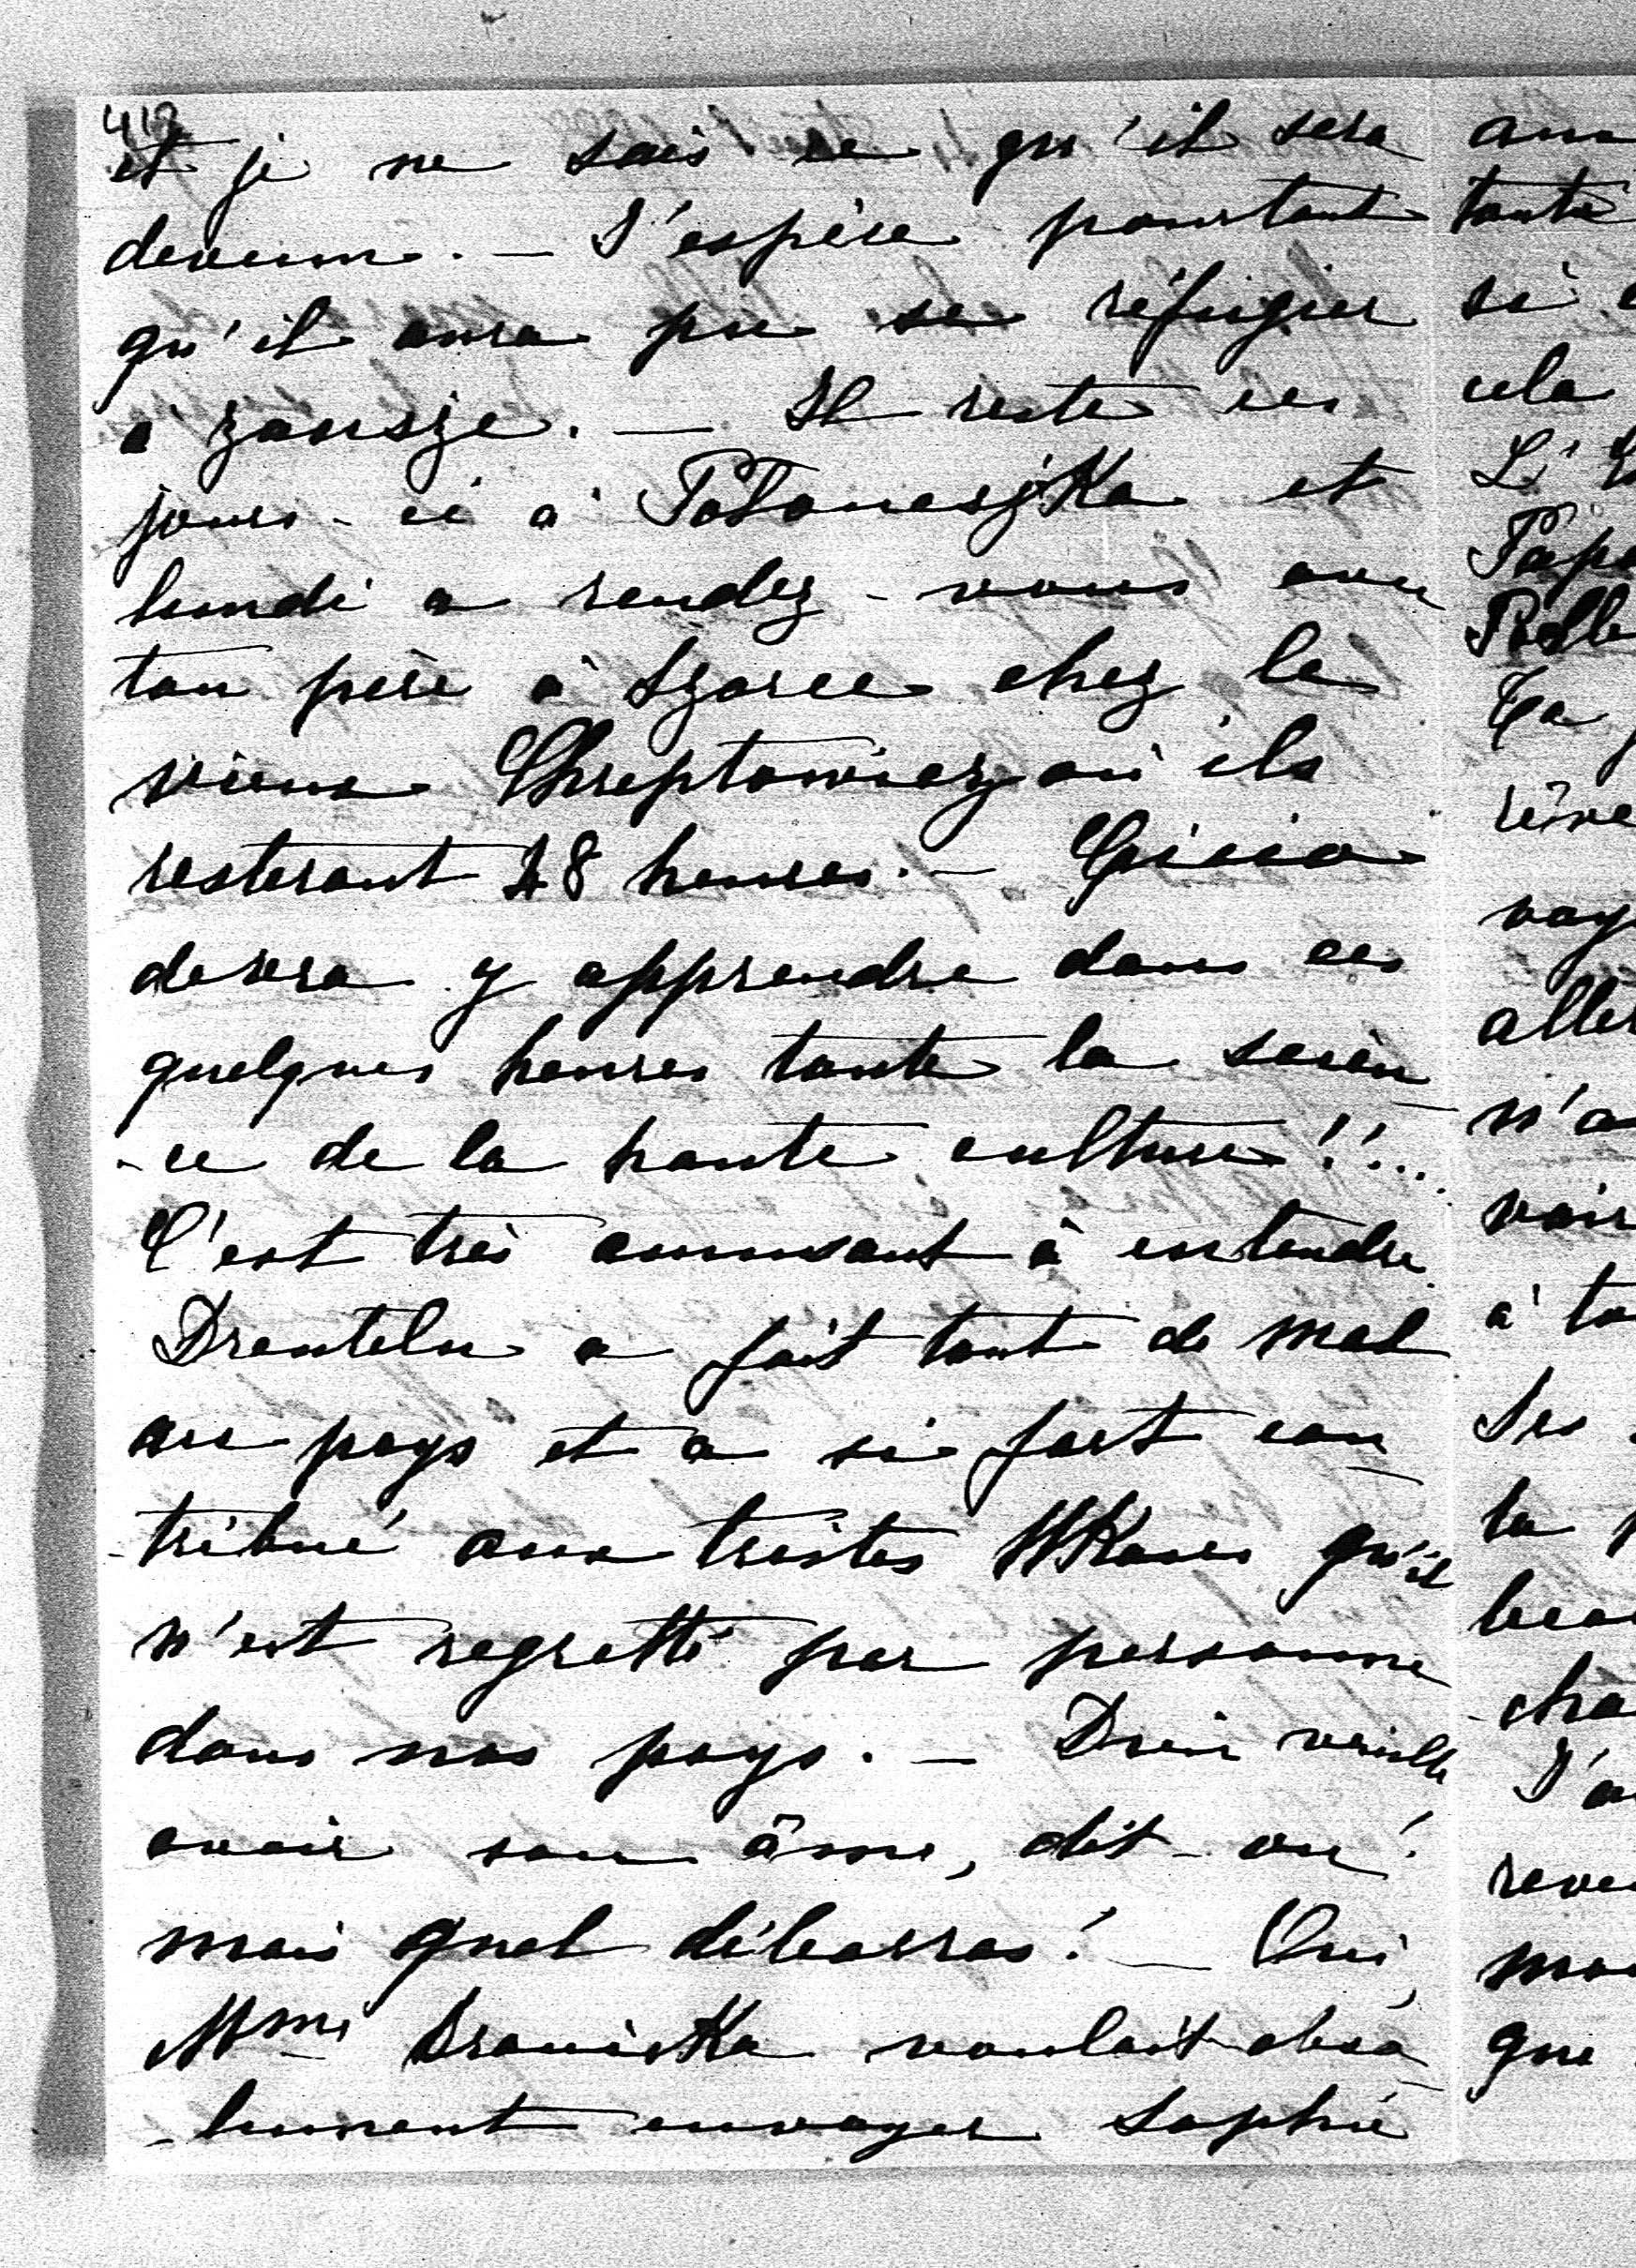 et je ne sais ce qu'il sera
devenu. — J'espère pourtant
qu'il aura pu se réfugier
à Zausze. — Il reste ces
jours-ci à Potoneszka et
lundi a rendez-vous avec
ton père à Szorce chez le
vieux Chreptowicz où ils
resteront 48 heures. — Gicio
devra y apprendre dans ces
quelques heures toute la scien
-ce de la haute culture!!...
C'est très amusant à entendre.
Drenteln a fait tant de mal
au pays et a si fort con
-tribué aux tristes Ukases qu'il
n'est regretté par personne
dans nos pays. — Dieu veuille
avoir son âme, dit-on!
mais quel débarras! — Oui,
Mme Branicka voulait abso
-lument envoyer Sophie
ann
toute
si
cela
L'
Papa
Ta
rêve
voy
aller
n'a
voir
à to
Ses
la
beau
-cha
J'a
reve
mo
que